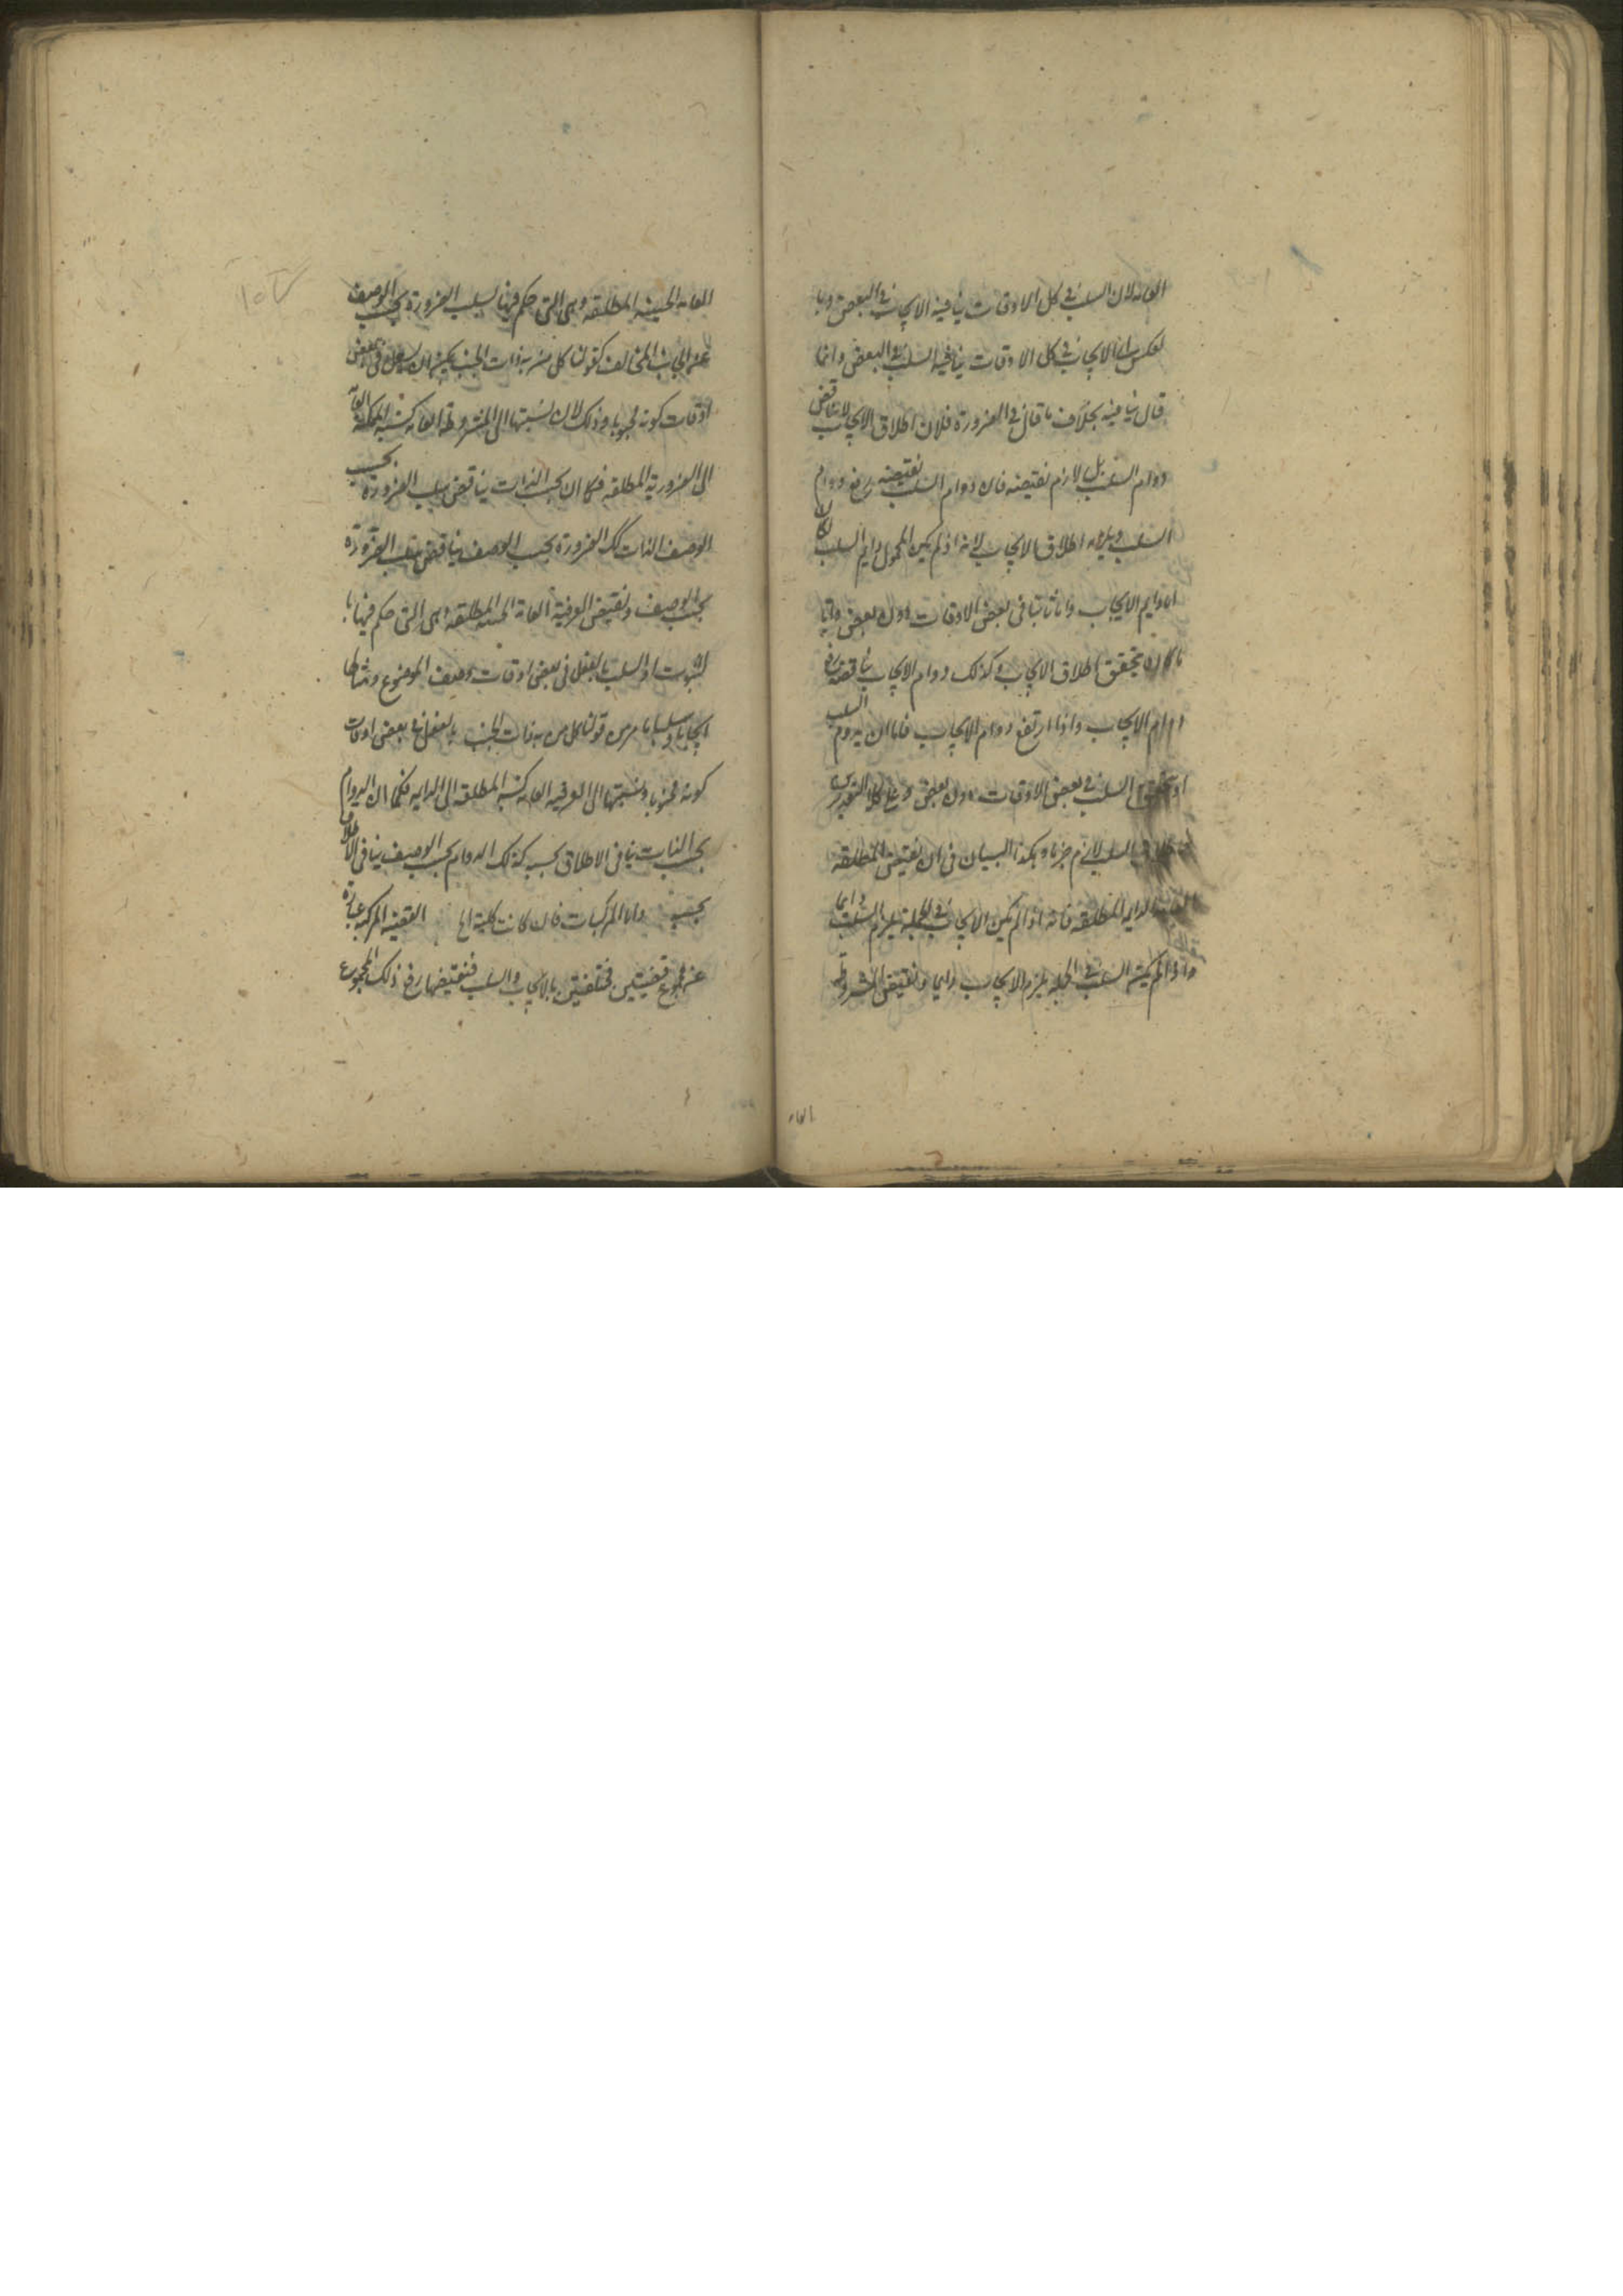 العامة لان السلب في كل الاوقات ينافيه الايجاب في البعض وبا
لعكس اى الايجاب في كل الاوقات ينافيه السلب في البعض وانما
قال ينافيه بخلاف ما قال في الضرورة فلان اطلاق الايجاب لا يناقض
دوام السلب بل لازم نقيضه فان دوام السلب نقيضه رفع دوام
السلب ويلزمه اطلاق الايجاب لانه اذا لم يكن المحمول دايم السلب لكان
اما دايم الايجاب واما ثابتا في بعض الاوقات دون بعض وايا
ما كان يتحقق اطلاق الايجاب وكذلك دوام الايجاب يناقضه رفع
دوام الايجاب واذا ارتفع دوام الايجاب فاما ان يدوم السلب
او يتحقق السلب في بعض الاوقات دون بعض وعلى كلا التقديرين
اطلاق السلب لازم جزما وهكذا البيان في ان نقيض المطلقة
العامة الدايمة المطلقة فانه اذا لم يكن الايجاب في الجملة يلزم السلب دايما
واذا لم يكن السلب في الجملة يلزم الايجاب دايما ونقيض المشروطة
العامة
العامة الحينية المطلقة وهى التى حكم فيها بسلب الضرورة بحسب الوصف
عن الجانب المخالف كقولنا كل من به ذات الجنب يمكن ان يسعل في بعض
اوقات كونه مجنوبا وذلك لان نسبتها الى المشروطة العامة كنسبة الممكنة العامة
الى الضرورية المطلقة فكما ان بحسب الذات يناقض سلب الضرورة بحسب
الوصف الذات كك الضرورة بحسب الوصف يناقض سلب الضرورة
بحسب الوصف ونقيض العرفية العامة الحينية المطلقة وهى التى حكم فيها با
لثبوت او السلب بالفعل في بعض اوقات وصف الموضوع ومثالها
ايجابا وسلبا ما مر من قولنا كل من به ذات الجنب بالفعل في بعض اوقات
كونه مجنوبا ونسبتها الى العرفية العامة كنسبة المطلقة الى الدايمة فكما ان الدوام
بحسب الذات ينافى الاطلاق بحسبه كذلك الدوام بحسب الوصف ينافى الاطلاق
بحسبه واما المركبات فان كانت كلية الخ القضية المركبة عبارة
عن مجموع قضيتين مختلفتين بالايجاب والسلب فنقيضها رفع ذلك المجموع